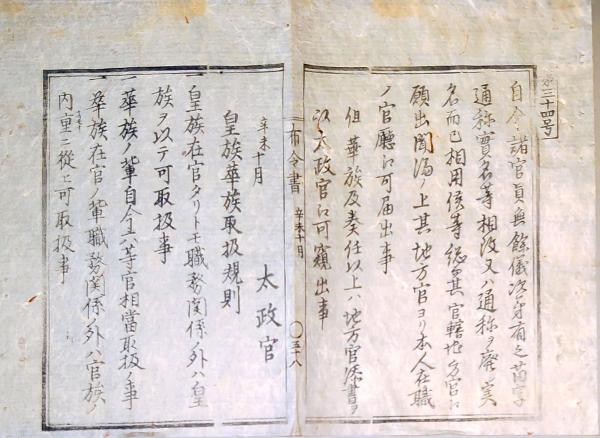 第三十四号
自今諸官員無餘儀次第有之苗字
通称實名等相改又ハ通称ヲ廃シ実
名而已相用候等総而其官轄地方官江
願出聞済ノ上其地方官ヨリ本人在職
ノ官廳江可届出事
但華族及奏任以上ハ地方官添書ヲ
以太政官江可窺出事
布令書 辛未十月 〇五十八
辛未十月
太政官
皇族華族取扱規則
一皇族在官タリトモ職務関係ノ外ハ皇
族ヲ以テ可取扱事
一華族ノ輩自今ハ等官相當取扱ノ事
一華族在官ノ輩職務関係ノ外ハ官族ノ
内重ニ從ヒ可取扱事